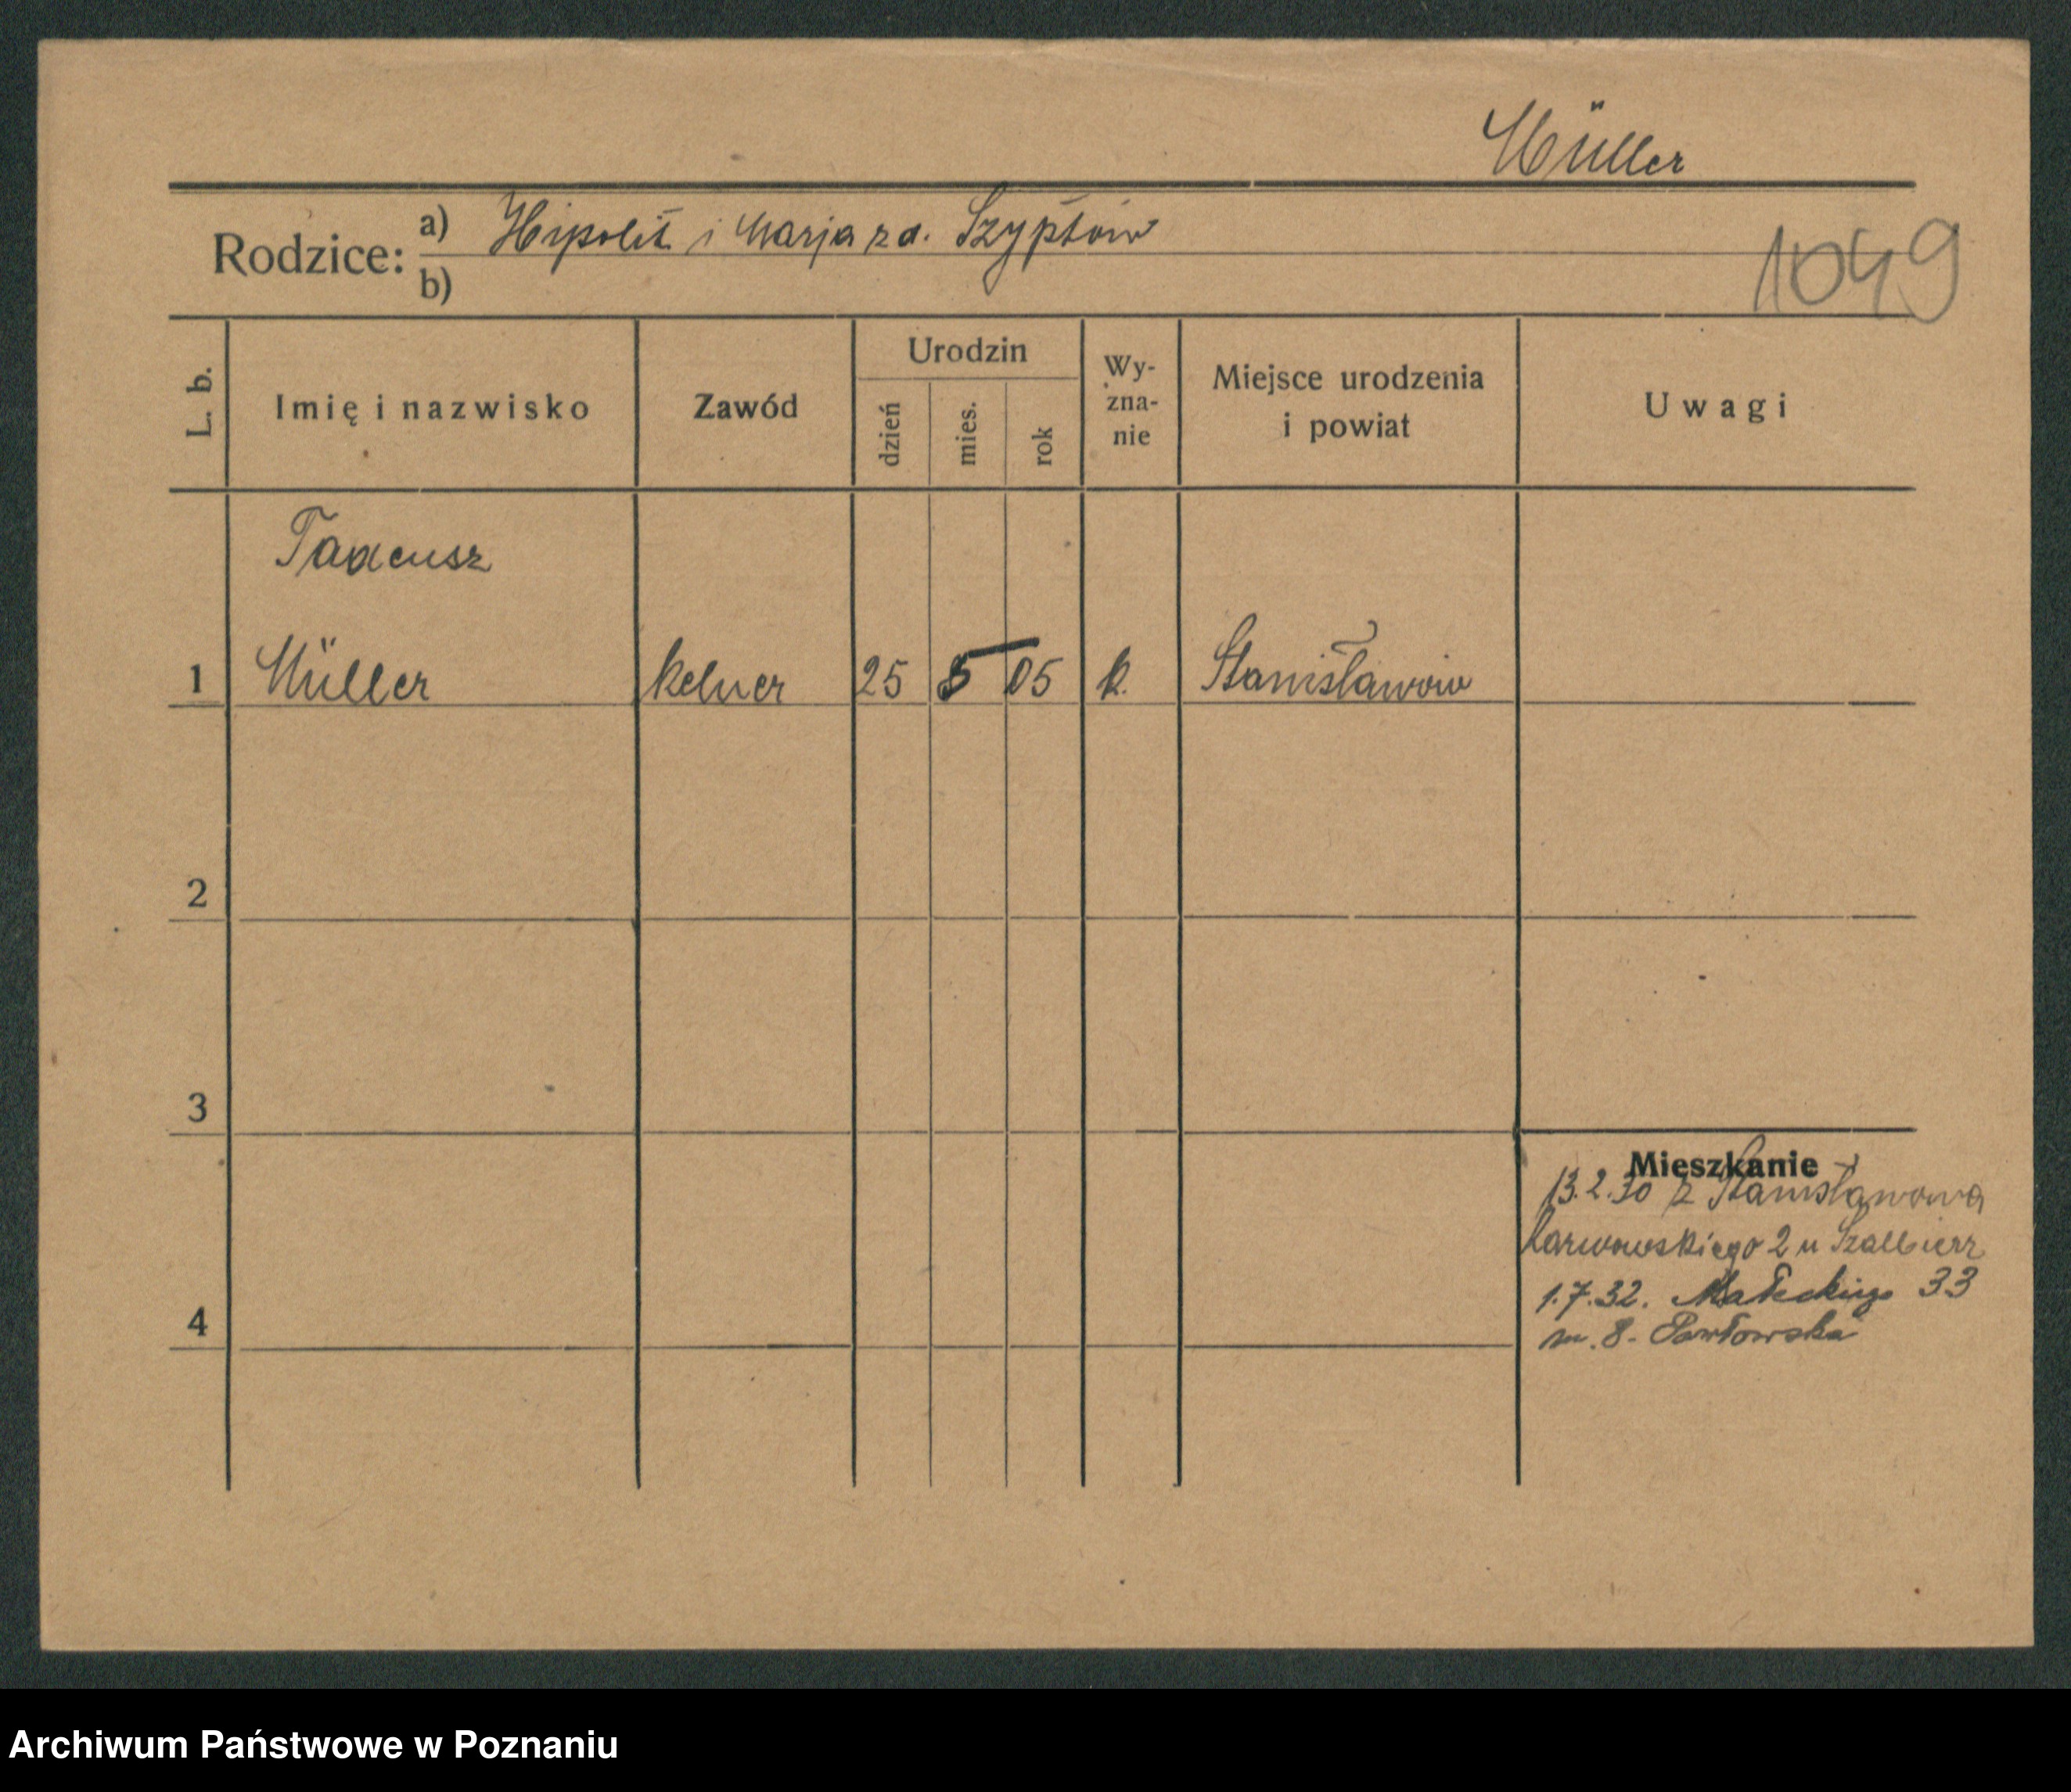 Müller
Rodzice: a) Hipolit i Marja zd. Szyptów
b)
1049
L. b.
Imię i nazwisko
Zawód
Urodzin
dzień
mies.
rok
Wy-
zna-
nie
Miejsce urodzenia
i powiat
Uwagi
Tadeusz
1 Müller kelner 25 5 05 k. Stanisławów
2
3
Mieszkanie
13.2.30 z Stanisławowa
Karwowskiego 2 u Szalbierz
1.7.32. Małeckiego 33
4
m. 8. Pawłowska
Archiwum Państwowe w Poznaniu